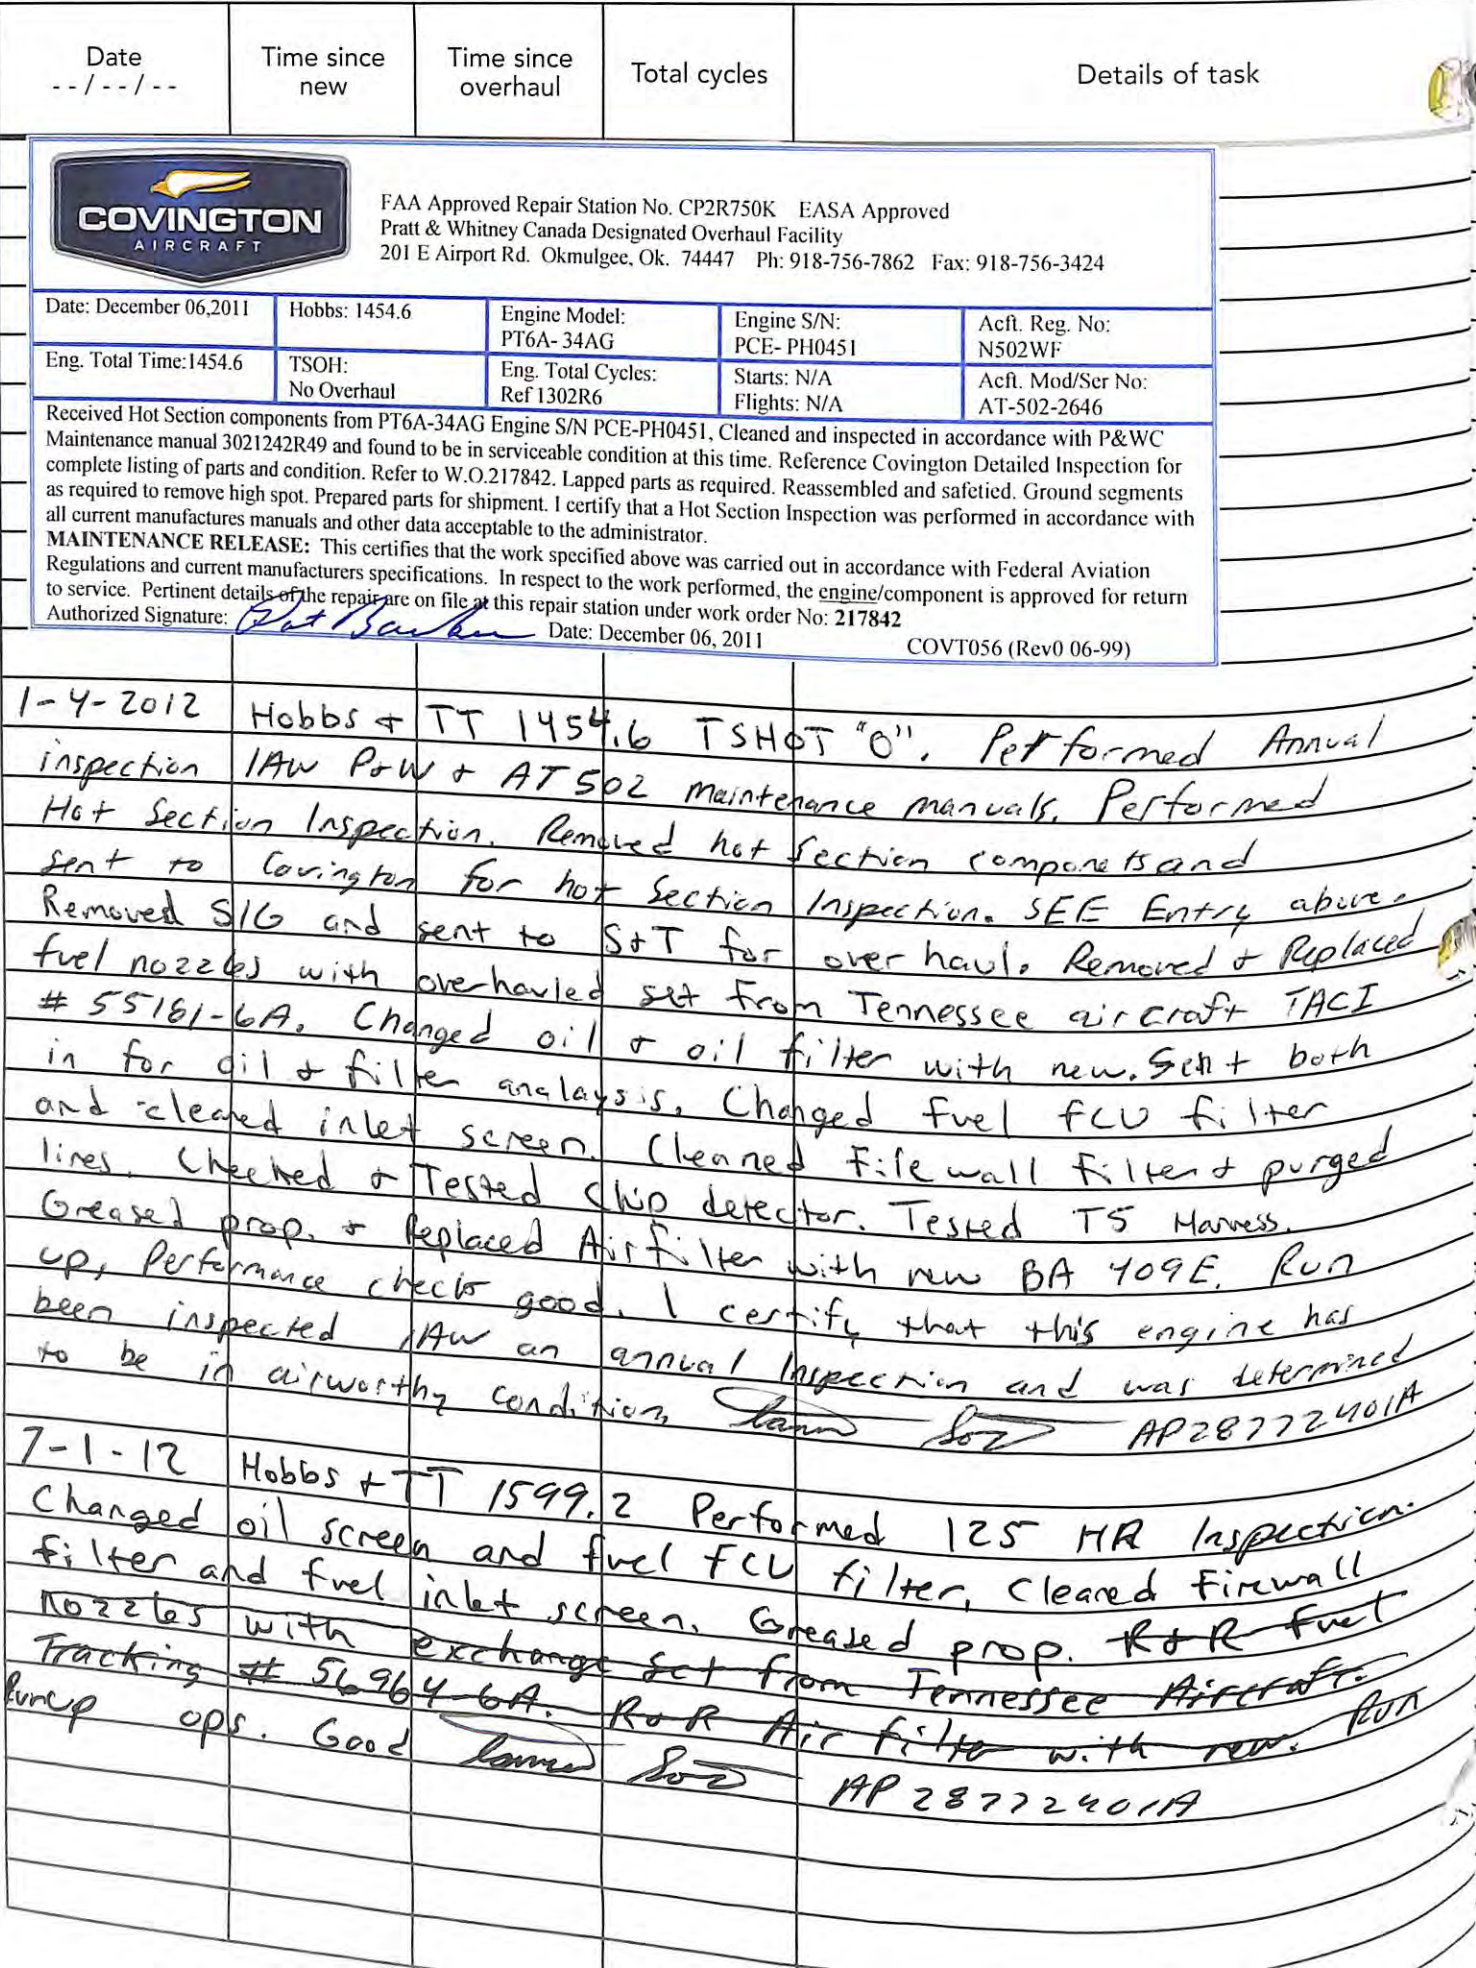 Date
--/--/--
Time since
new
Time since
overhaul
Total cycles
Details of task
COVINGTON
AIRCRAFT
FAA Approved Repair Station No. CP2R750K EASA Approved
Pratt & Whitney Canada Designated Overhaul Facility
201 E Airport Rd. Okmulgee, Ok. 74447 Ph: 918-756-7862 Fax: 918-756-3424
Date: December 06,2011
Hobbs: 1454.6
Engine Model:
PT6A- 34AG
Engine S/N:
PCE- PH0451
Acft. Reg. No:
N502WF
Eng. Total Time:1454.6
TSOH:
No Overhaul
Eng. Total Cycles:
Ref 1302R6
Starts: N/A
Flights: N/A
Acft. Mod/Ser No:
AT-502-2646
Received Hot Section components from PT6A-34AG Engine S/N PCE-PH0451, Cleaned and inspected in accordance with P&WC
Maintenance manual 3021242R49 and found to be in serviceable condition at this time. Reference Covington Detailed Inspection for
complete listing of parts and condition. Refer to W.O.217842. Lapped parts as required. Reassembled and safetied. Ground segments
as required to remove high spot. Prepared parts for shipment. I certify that a Hot Section Inspection was performed in accordance with
all current manufactures manuals and other data acceptable to the administrator.
MAINTENANCE RELEASE: This certifies that the work specified above was carried out in accordance with Federal Aviation
Regulations and current manufacturers specifications. In respect to the work performed, the engine/component is approved for return
to service. Pertinent details of the repair are on file at this repair station under work order No: 217842
Authorized Signature: Date: December 06, 2011 COVT056 (Rev0 06-99)
1-4-2012 Hobbs + TT 1454.6 TSHOT "0". Performed Annual
inspection IAW P+W + AT502 maintenance manuals. Performed
Hot Section Inspection. Removed hot section componets and
sent to Covington for hot Section Inspection. SEE Entry above.
Removed S/G and sent to S+T for over haul. Removed + Replaced
fuel nozzles with overhauled set from Tennessee aircraft TACI
# 55181-6A. Changed oil + oil filter with new. Sent both
in for oil + filter analaysis. Changed fuel FCU filter
and cleaned inlet screen. Cleaned Filewall filter + purged
lines. Checked + Tested Chip detector. Tested T5 Harness.
Greased prop. + Replaced Airfilter with new BA 409E. Run
up, Performance checks good. I certify that this engine has
been inspected IAW an annual Inspection and was determined
to be in airworthy condition AP287722401A
7-1-12 Hobbs + TT 1599.2 Performed 125 HR Inspection.
Changed oil screen and fuel FCU filter, Cleaned Firewall
filter and fuel inlet screen. Greased prop. R+R Fuel
nozzles with exchange set from Tennessee Aircraft.
Tracking # 56964-6A. R+R Air filter with new. Run
Runup ops. Good AP 287722401A